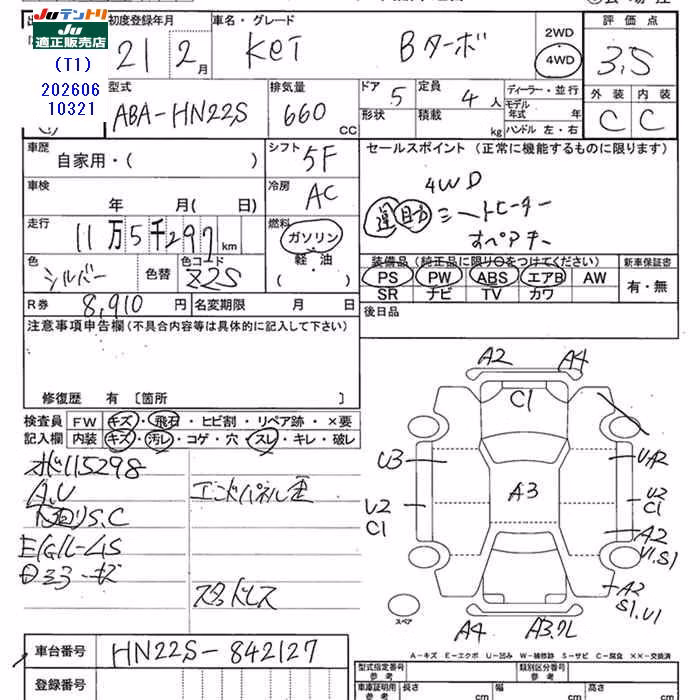 JUテントリ
JU適正販売店
(T1)
202606
10321
初度登録年月 車名・グレード 評価点
21 2月 Kei Bターボ 2WD 4WD 3.5
型式 排気量 ドア 定員 ディーラー・並行 外装 内装
ABA-HN22S 660 CC 5 4人 モデル年式 年 C C
形状 積載 kg ハンドル 左・右
車歴 シフト セールスポイント (正常に機能するものに限ります)
自家用・( ) 5F
車検 冷房 4WD
年 月( 日) AC 運 助 シートヒーター
走行 燃料 スペアキー
11万5千297km ガソリン
色 色替 色コード 軽・油
シルバー Z2S ( )
装備品 (純正品に限り○をつけてください) 新車保証書
PS PW ABS エアB AW 有・無
SR ナビ TV カワ
R券 8,910円 名変期限 月 日
後日品
注意事項申告欄(不具合内容等は具体的に記入して下さい)
修復歴 有 〔箇所 〕
検査員 FW キズ・飛石・ヒビ割・リペア跡・×要
記入欄 内装 キズ・汚レ・コゲ・穴・スレ・キレ・破レ
115298
A.U エンドパネル歪
下回りS.C
スタッドレス
A2 A4
C1
U3 U.A2
A3
U2 U2
C1 C1
A2
U1.S1
A2
S1.U1
スペア
A4 A3.ワレ
A-キズ E-エクボ U-凹み W-補修跡 S-サビ C-腐食 XX-交換済
車台番号 HN22S-842127
登録番号
型式指定番号 参考 類別区分番号 参考
車庫証明用 参考 長さ cm 幅 cm 高さ cm